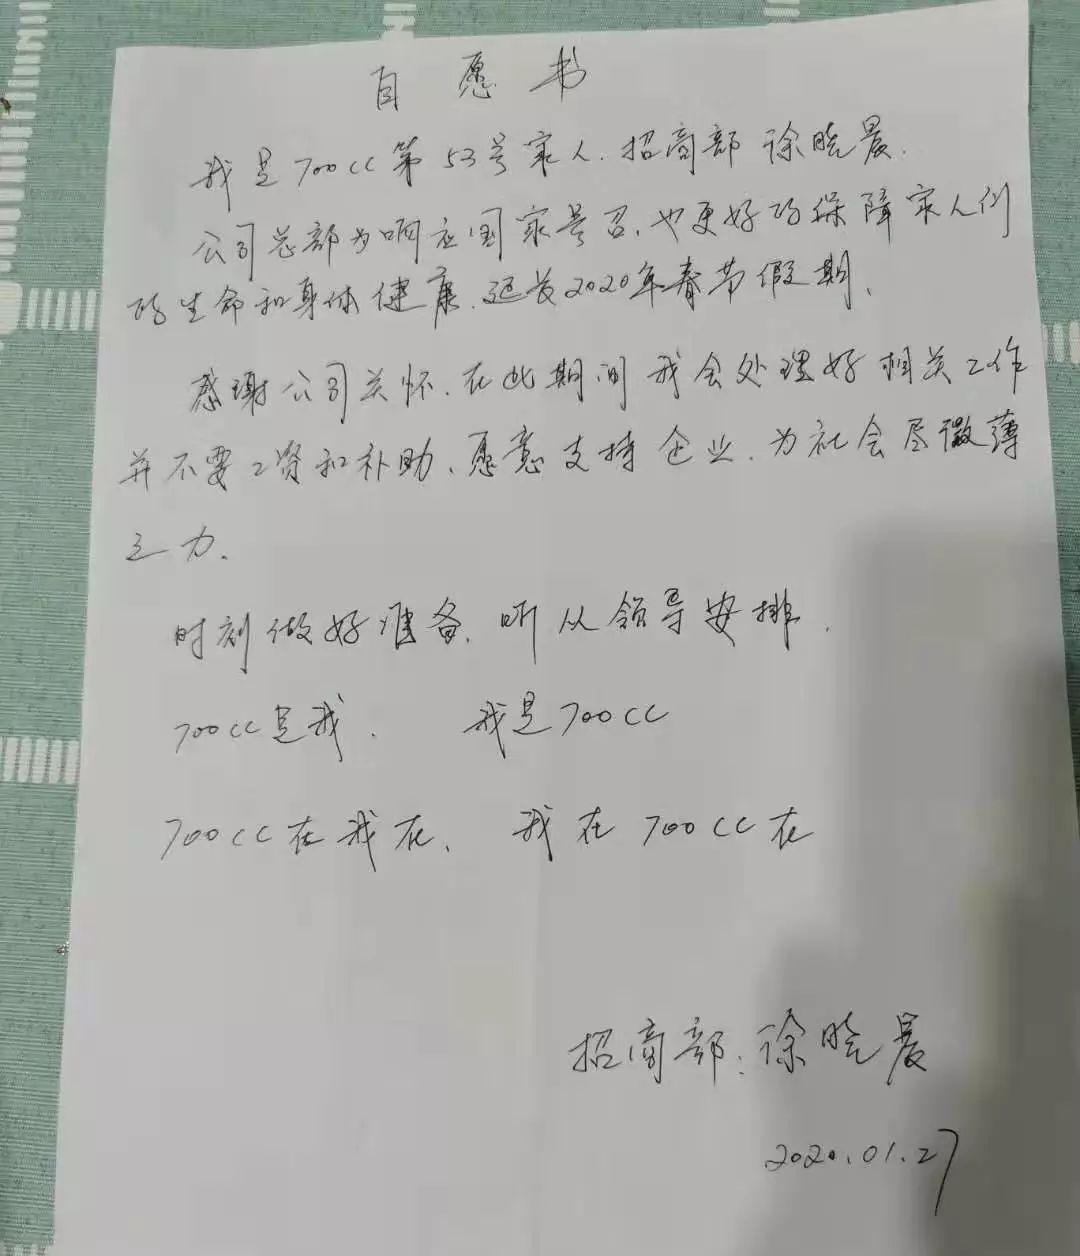 自愿书
我是700CC第53号家人、招商部 徐晓晨.
公司总部为响应国家号召、也更好的保障家人们
的生命和身体健康、延长2020年春节假期、
感谢公司关怀、在此期间我会处理好相关工作
并不要工资和补助、愿意支持企业、为社会尽微薄
之力、
时刻做好准备、听从领导安排、
700CC是我、 我是700CC
700CC在我在、 我在700CC在
招商部:徐晓晨
2020.01.27